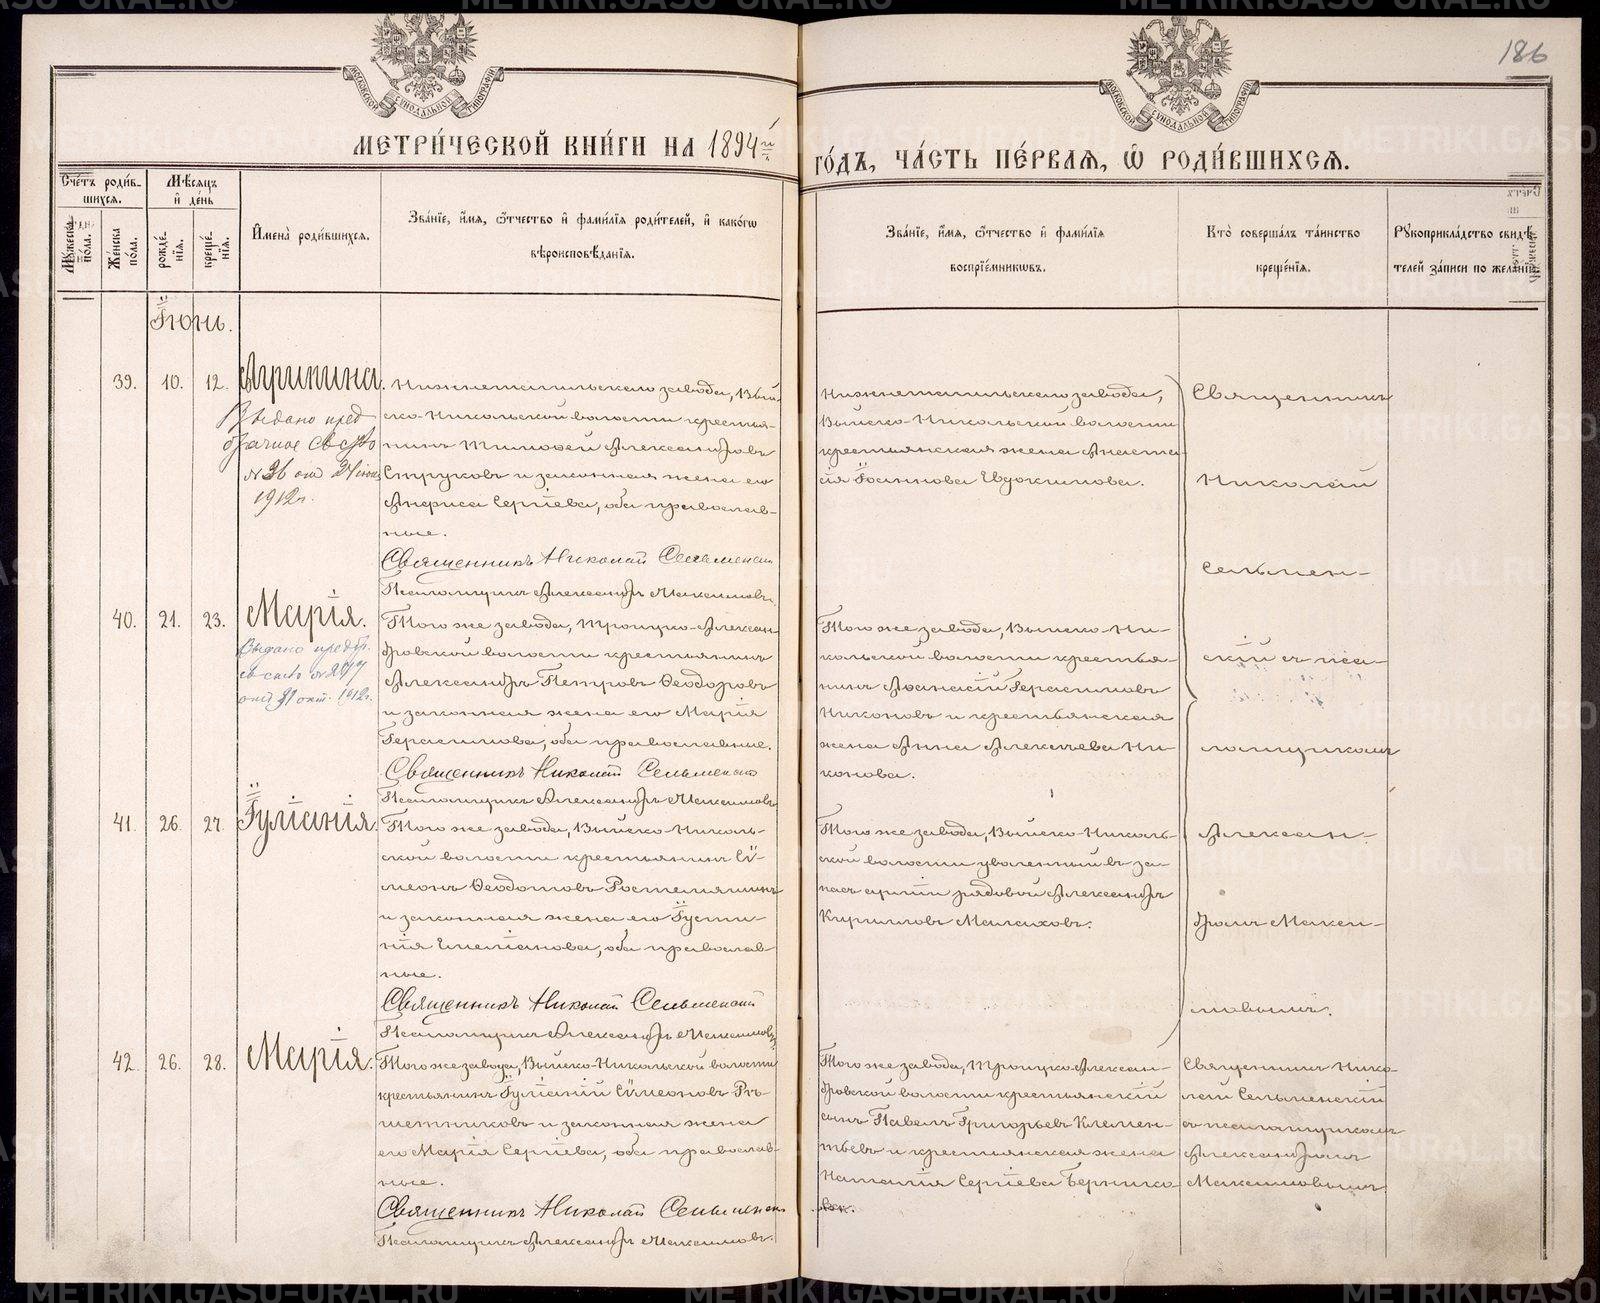 186
МОСКОВСКОЙ СѴНОДАЛЬНОЙ ТИПОГРАФІИ
МОСКОВСКОЙ СѴНОДАЛЬНОЙ ТИПОГРАФІИ
МЕТРИ́ЧЕСКОЙ КНИ́ГИ НА 1894й
ГО́ДЪ, ЧА́СТЬ ПЕ́РВАЯ, Ѡ РОДИ́ВШИХСЯ.
Сче́тъ роди́в-
шихся.
Мѣ́сяцъ
и день
Му́жеска по́ла.
Же́нска по́ла.
рожде́нїя.
креще́нїя.
Имена̀ роди́вшихся.
Зва́нїе, и́мя, ѻ́тчество и фами́лїя роди́телей, и како́гѡ
вѣроисповѣ́данїя.
Зва́нїе, и́мя, ѻ́тчество и фами́лїя
воспрїе́мникѡвъ.
Кто̀ соверша́лъ та́инство
креще́нїя.
Рꙋкоприкла́дство свидѣ́-
телей за́писи по жела́нїю.
Іюнь.
39.
10.
12.
Агрипина.
Выдано пред
брачное св-ство
№ 36 от 24 июн
1912 г.
Нижнетагильскаго завода, Вый-
ско-Никольской волости крестья-
нинъ Тимофей Александровъ
Струковъ и законная жена его
Сергіева, оба православ-
ные.
Священникъ Николай Сельменскій
Псаломщикъ Александръ Максимовъ.
Нижнетагильскаго завода,
Выйско-Никольской волости
крестьянская жена Анаста-
сія Іоаннова Евдокимова.
Священникъ
Николай
Сельмен-
скій съ пса-
ломщикомъ
Алексан-
дромъ Макси-
мовымъ.
40.
21.
23.
Марія.
Выдано предбр.
1912 г.
Того же завода, Троицко-Алексан-
дровской волости крестьянинъ
Александръ Петровъ Ѳеодоровъ
и законная жена его Марія
Герасимова, оба православные.
Священникъ Николай Сельменскій
Псаломщикъ Александръ Максимовъ
Того же завода, Выйско-Ни-
кольской волости крестья-
нинъ Аѳанасій Герасимовъ
Никоновъ и крестьянская
жена Анна Алексѣева Ни-
конова.
41.
26.
27.
Іуліанія.
Того же завода, Выйско-Николь-
ской волости крестьянинъ Сѵ-
меонъ Ѳеодотовъ
и законная жена его Іусти-
нія Емеліанова, оба православ-
ные.
Священникъ Николай Сельменскій
Псаломщикъ Александръ Максимовъ.
Того же завода, Выйско-Николь-
ской волости уволенный въ за-
пасъ арміи рядовой Александръ
Кирилловъ Малаховъ.
42.
26.
28.
Марія.
Того же завода, Выйско-Никольской волости
крестьянинъ Іуліаній Сѵмеоновъ Рѣ-
шетниковъ и законная жена
его Марія Сергіева, оба православ-
ные.
Священникъ Николай Сельменскій
Псаломщикъ Александръ Максимовъ.
Того же завода, Троицко-Алексан-
дровской волости крестьянскій
сынъ Павелъ Григорьевъ Клемен-
тьевъ и крестьянская жена
Наталія Сергіева
Священникъ Нико-
лай Сельменскій
съ псаломщикомъ
Александромъ
Максимовымъ.
METRIKI.GASO-URAL.RU